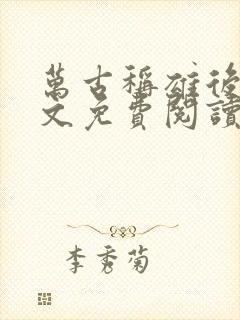 萬古稱雄後
文免費閱讀
李秀菊